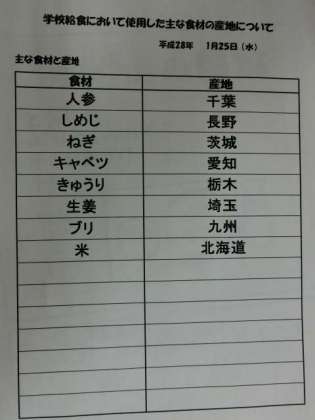 学校給食において使用した主な食材の産地について
平成28年 1月25日（水）
主な食材と産地
食材 産地
人参 千葉
しめじ 長野
ねぎ 茨城
キャベツ 愛知
きゅうり 栃木
生姜 埼玉
ブリ 九州
米 北海道